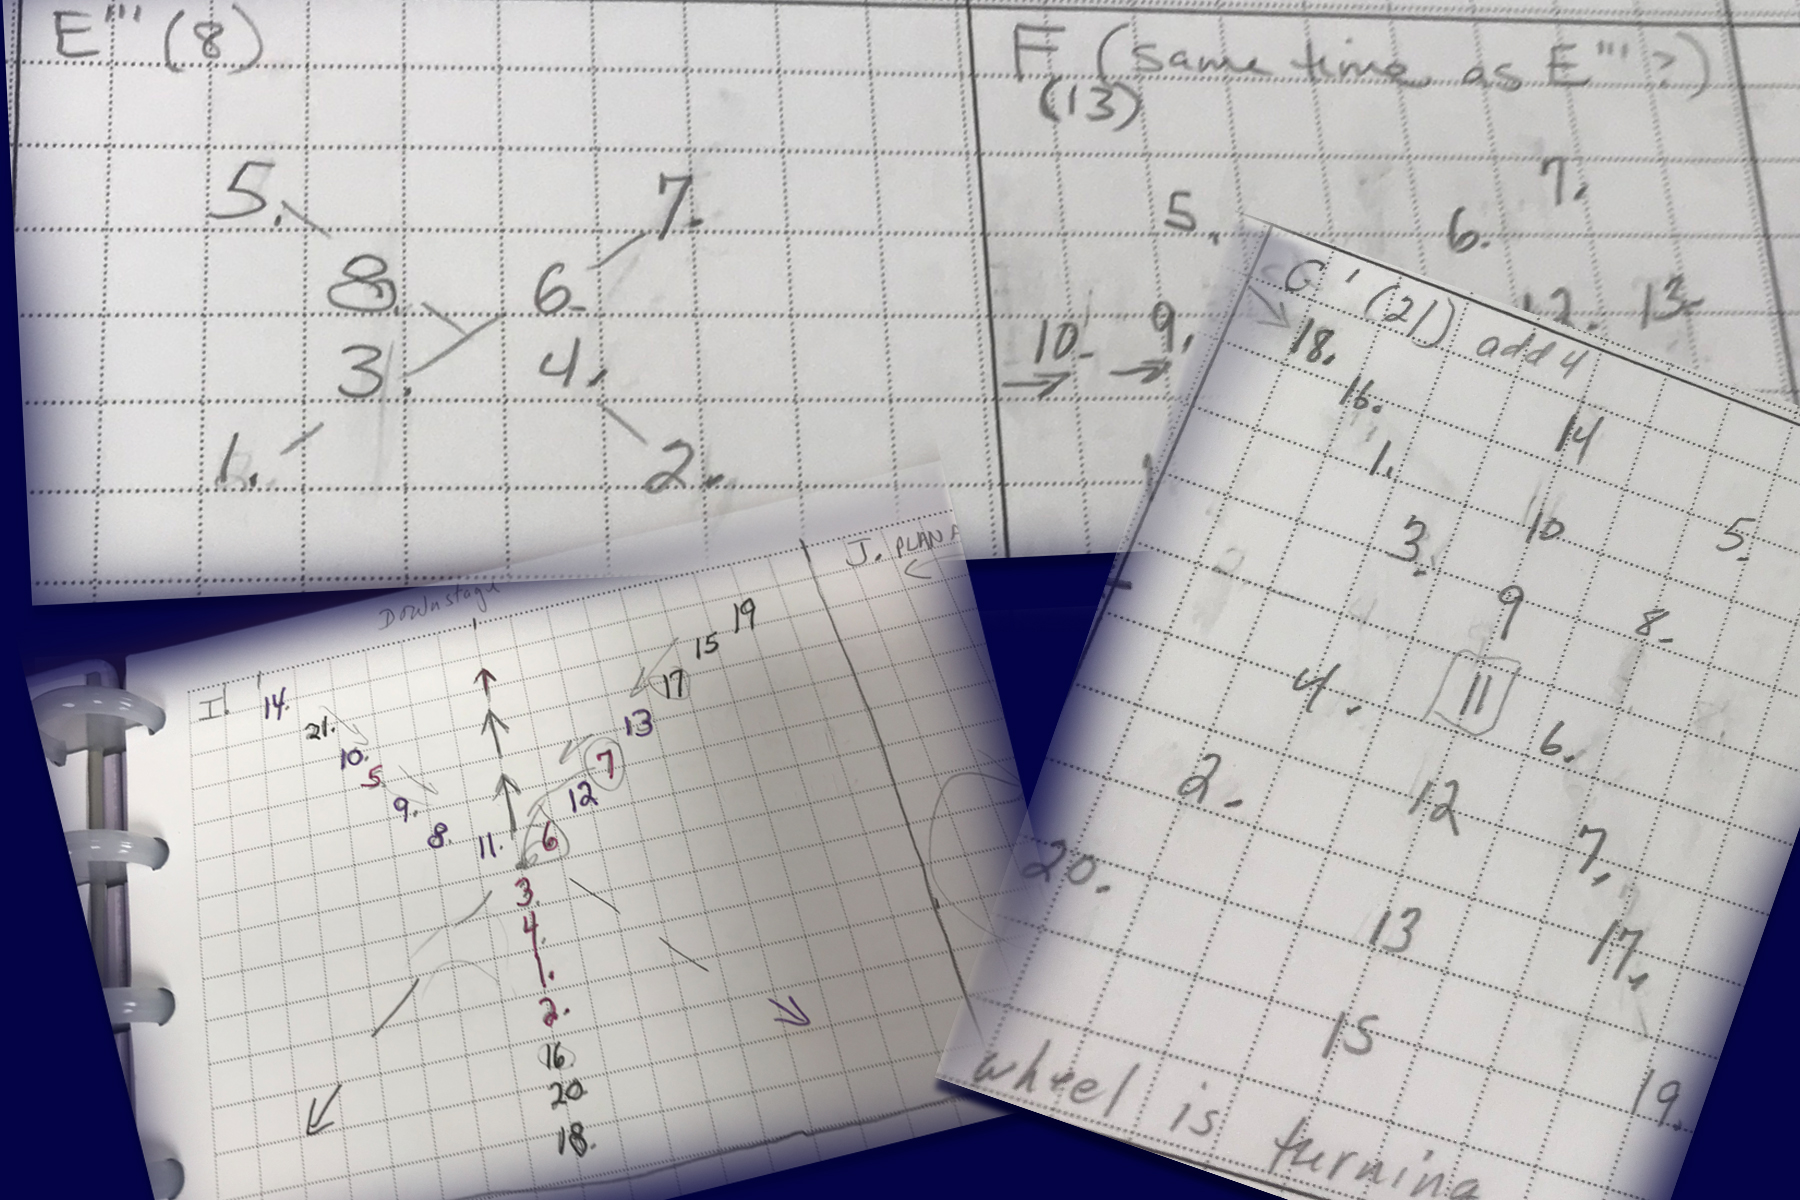 E''' (8)
5. 7.
8. 6.
3. 4.
1. 2.
F (same time as E''' ?)
(13)
7.
5. 6.
12. 13.
10. 9.
G' (21) add 4
18.
16. 14
1.
3. 10 5.
9 8.
4. 11 6.
2. 12 7.
20. 13 17.
15 19.
wheel is turning
Downstage
I. 14. 19
21. 15
17
10. 13
5 7
9. 12
8. 11. 6
3
4.
1.
2.
16
20
18.
J. PLAN